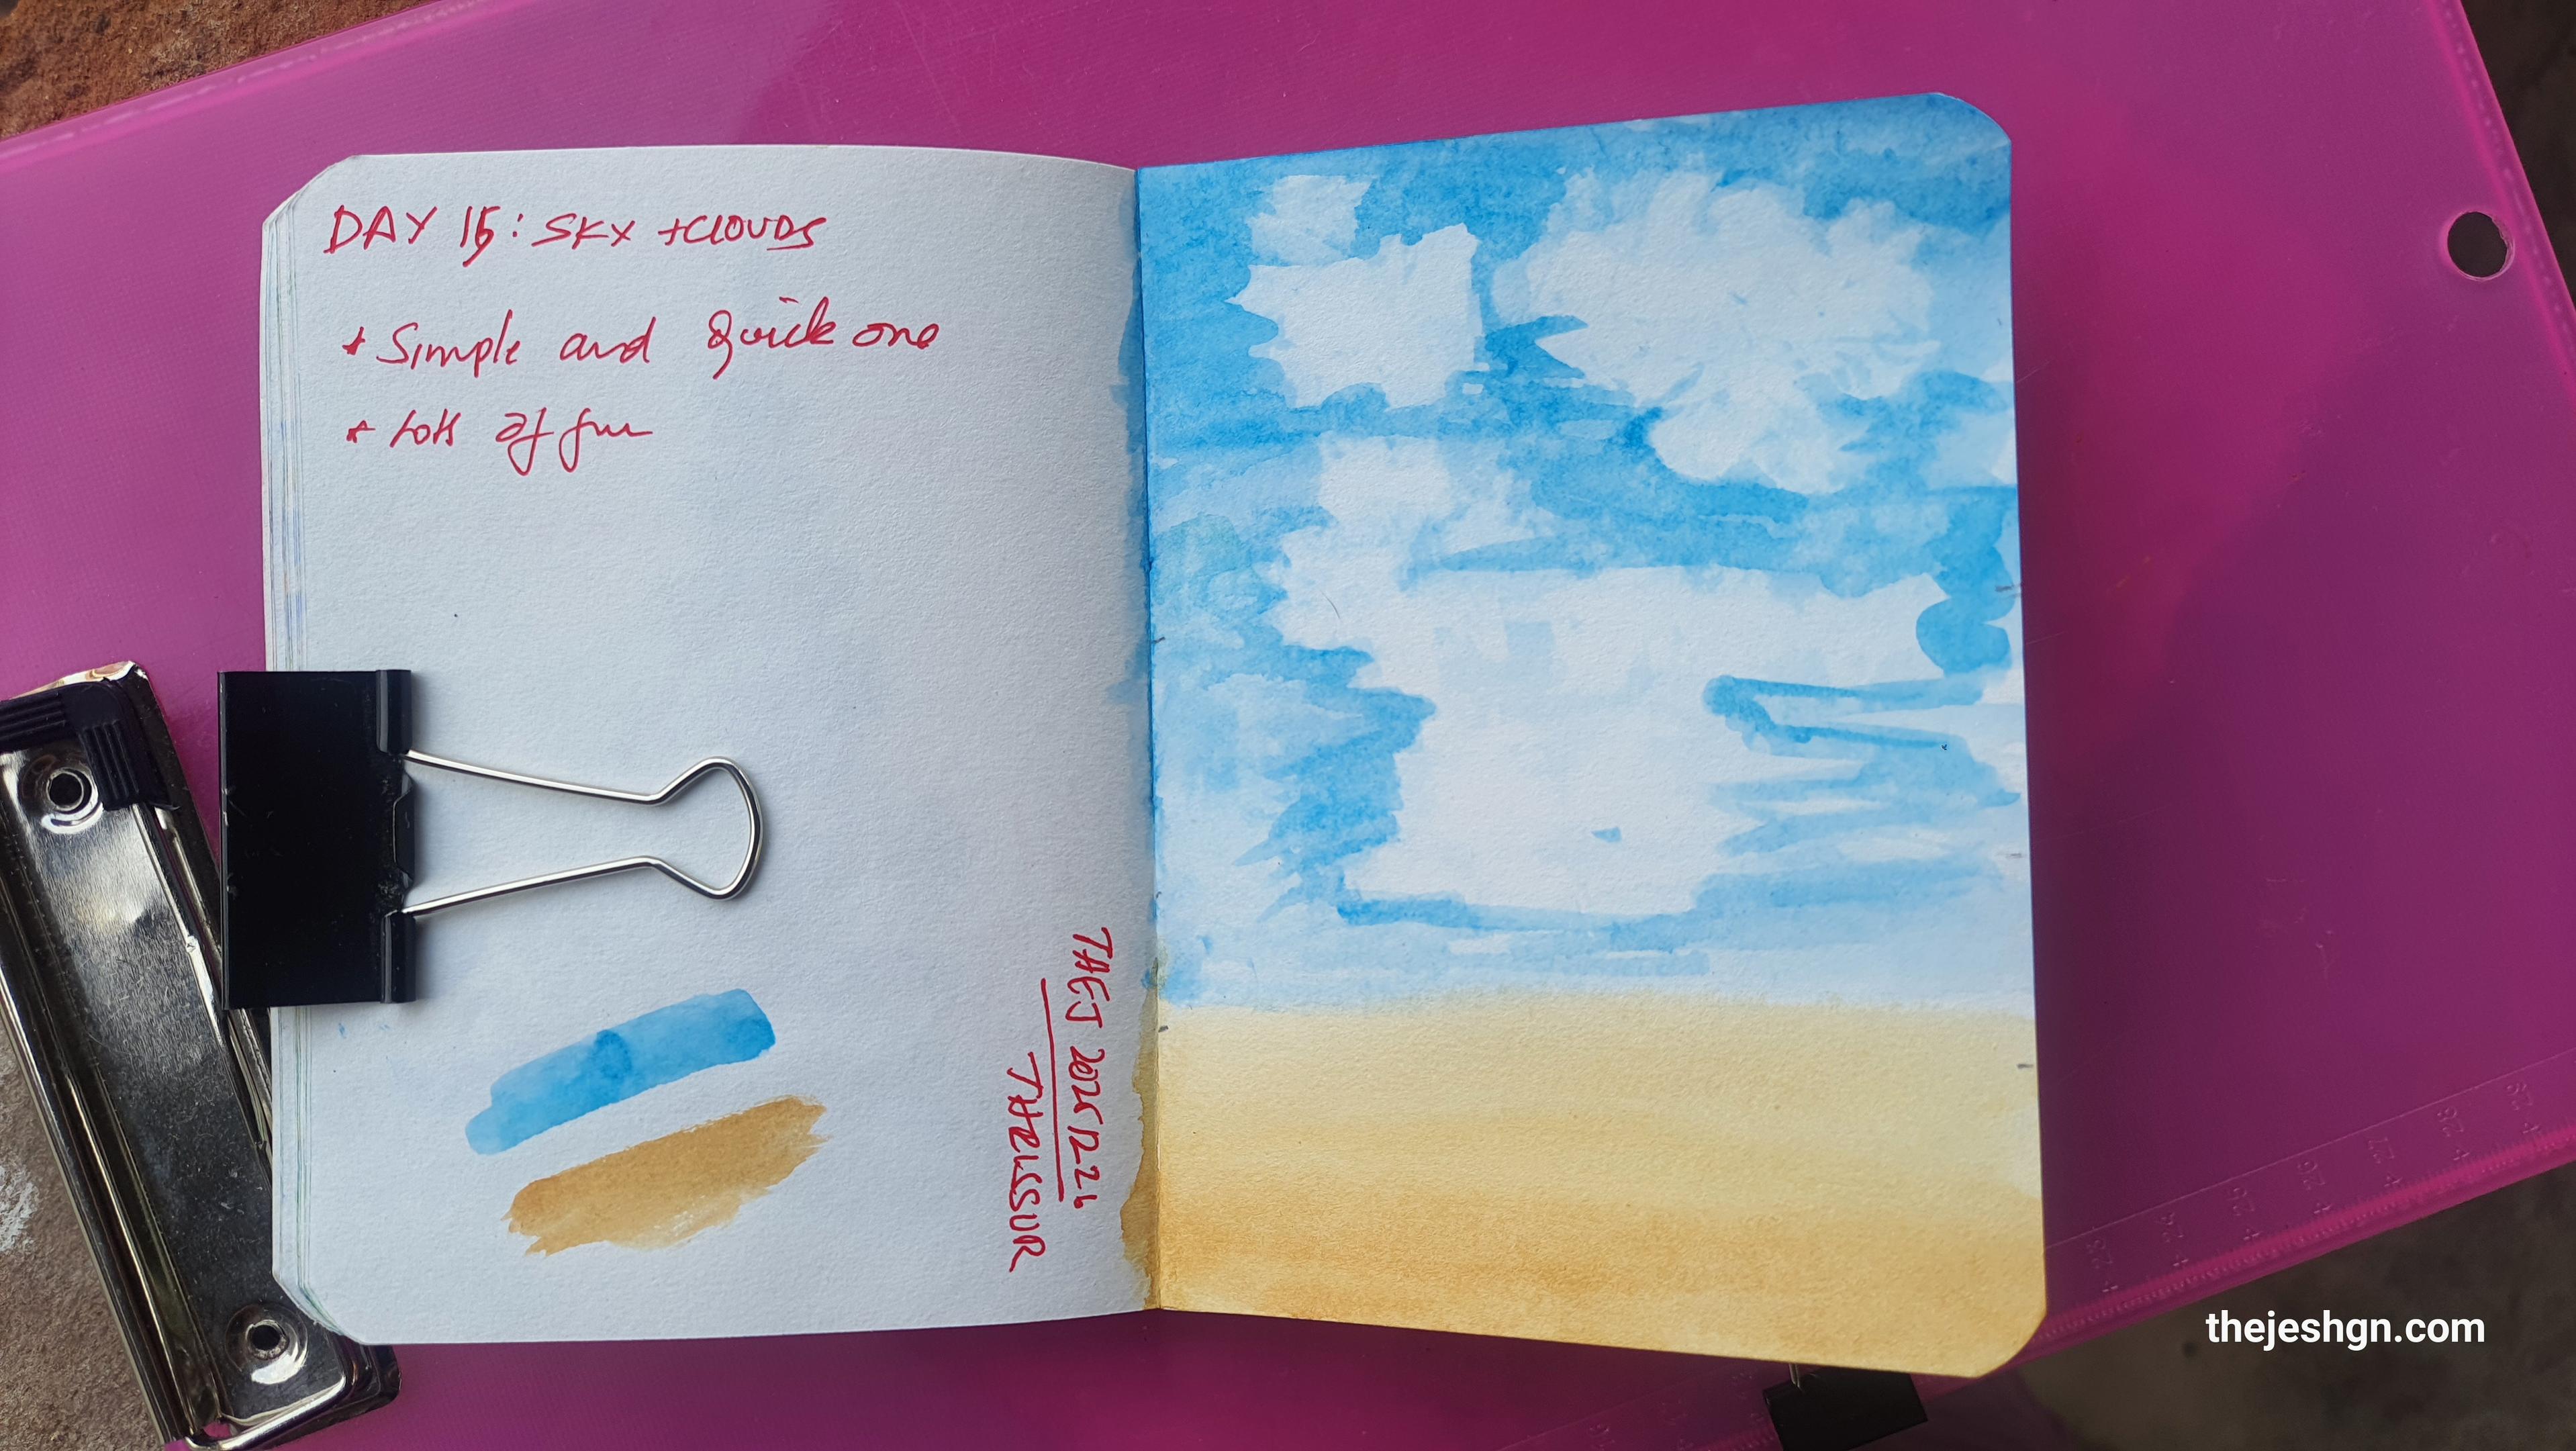 DAY 15: SKY + CLOUDS
* Simple and Quick one
* Lots of fun
THEJ 2025 12 26
THRISSUR
thejeshgn.com